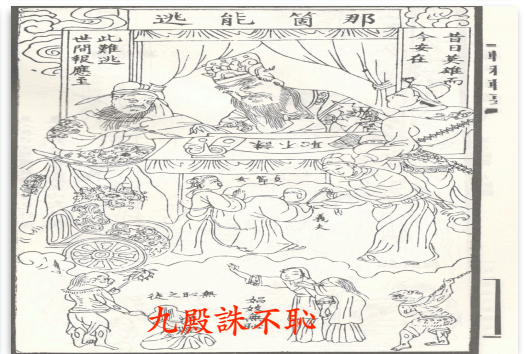 那箇能逃
昔日英雄而
今安在
世間報應至
此難逃
貞節女
義夫
無恥之徒
九殿誅不恥